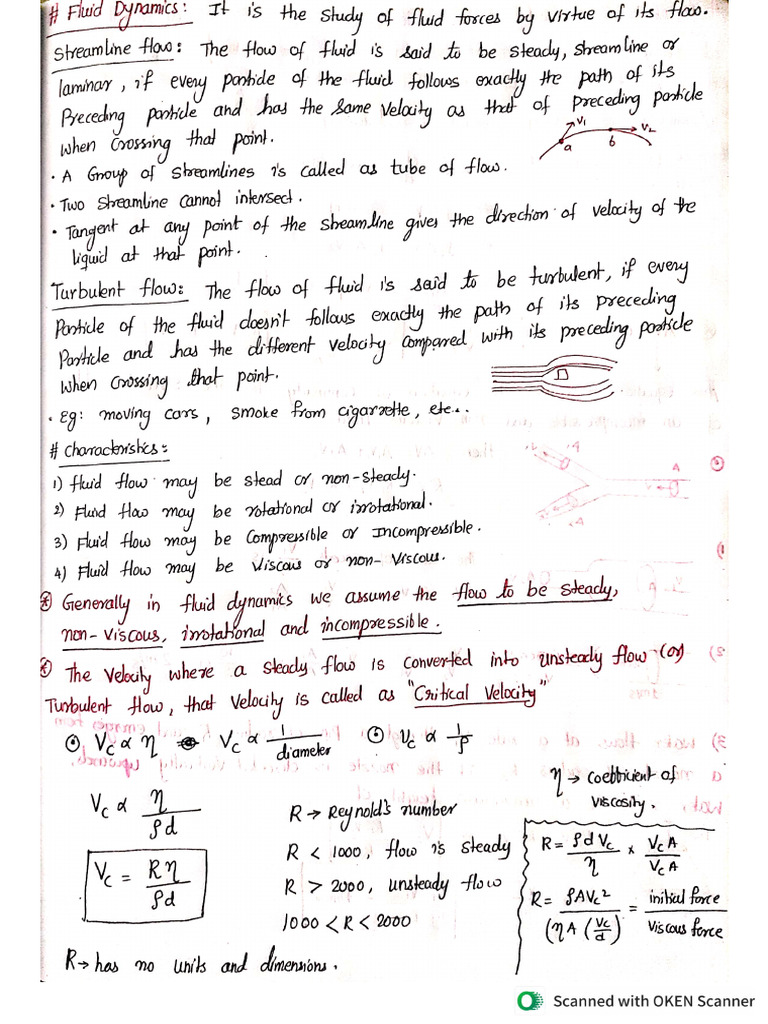 # Fluid Dynamics: It is the study of fluid forces by virtue of its flow.
Streamline flow: The flow of fluid is said to be steady, streamline or
laminar, if every particle of the fluid follows exactly the path of its
Preceding particle and has the same velocity as that of preceding particle
when crossing that point.
V₁ V₂
a b
• A Group of streamlines is called as tube of flow.
• Two streamline cannot intersect.
• Tangent at any point of the streamline gives the direction of velocity of the
liquid at that point.
Turbulent flow: The flow of fluid is said to be turbulent, if every
Particle of the fluid doesn't follows exactly the path of its preceding
Particle and has the different velocity compared with its preceding particle
when crossing that point.
• Eg: moving cars, smoke from cigarrette, etc...
# Characteristics:
1) fluid flow may be stead or non-steady.
2) Fluid flow may be rotational or irrotational.
3) Fluid flow may be Compressible or Incompressible.
4) Fluid flow may be Viscous or non-Viscous.
Generally in fluid dynamics we assume the flow to be steady,
non-viscous, irrotational and incompressible.
The velocity where a steady flow is converted into unsteady flow (or)
Turbulent flow, that velocity is called as "Critical Velocity"
Vc ∝ η Vc ∝ 1/diameter Vc ∝ 1/ρ
η → coefficient of
viscosity.
Vc ∝ η/ρd
Vc = Rη/ρd
R → Reynold's number
R < 1000, flow is steady
R > 2000, unsteady flow
1000 < R < 2000
R = ρdVc/η × VcA/VcA
R = ρAVc²/(ηA(Vc/d) = initial force/viscous force
R → has no units and dimensions.
Scanned with OKEN Scanner